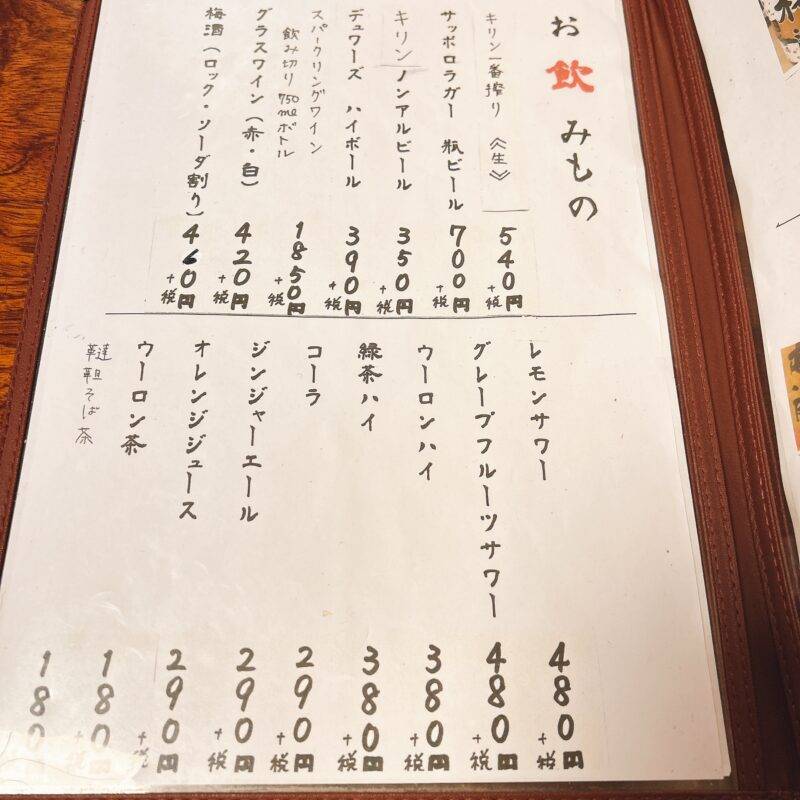 お飲みもの
キリン一番搾り 《生》 540円+税
サッポロラガー 瓶ビール 700円+税
キリン ノンアルビール 350円+税
デュワーズ ハイボール 390円+税
スパークリングワイン
飲み切り 750mlボトル 1850円+税
グラスワイン(赤・白) 420円+税
梅酒(ロック・ソーダ割り) 460円+税
レモンサワー 480円+税
グレープフルーツサワー 480円+税
ウーロンハイ 380円+税
緑茶ハイ 380円+税
コーラ 290円+税
ジンジャーエール 290円+税
オレンジジュース 290円+税
ウーロン茶 180円+税
韃靼そば茶 180